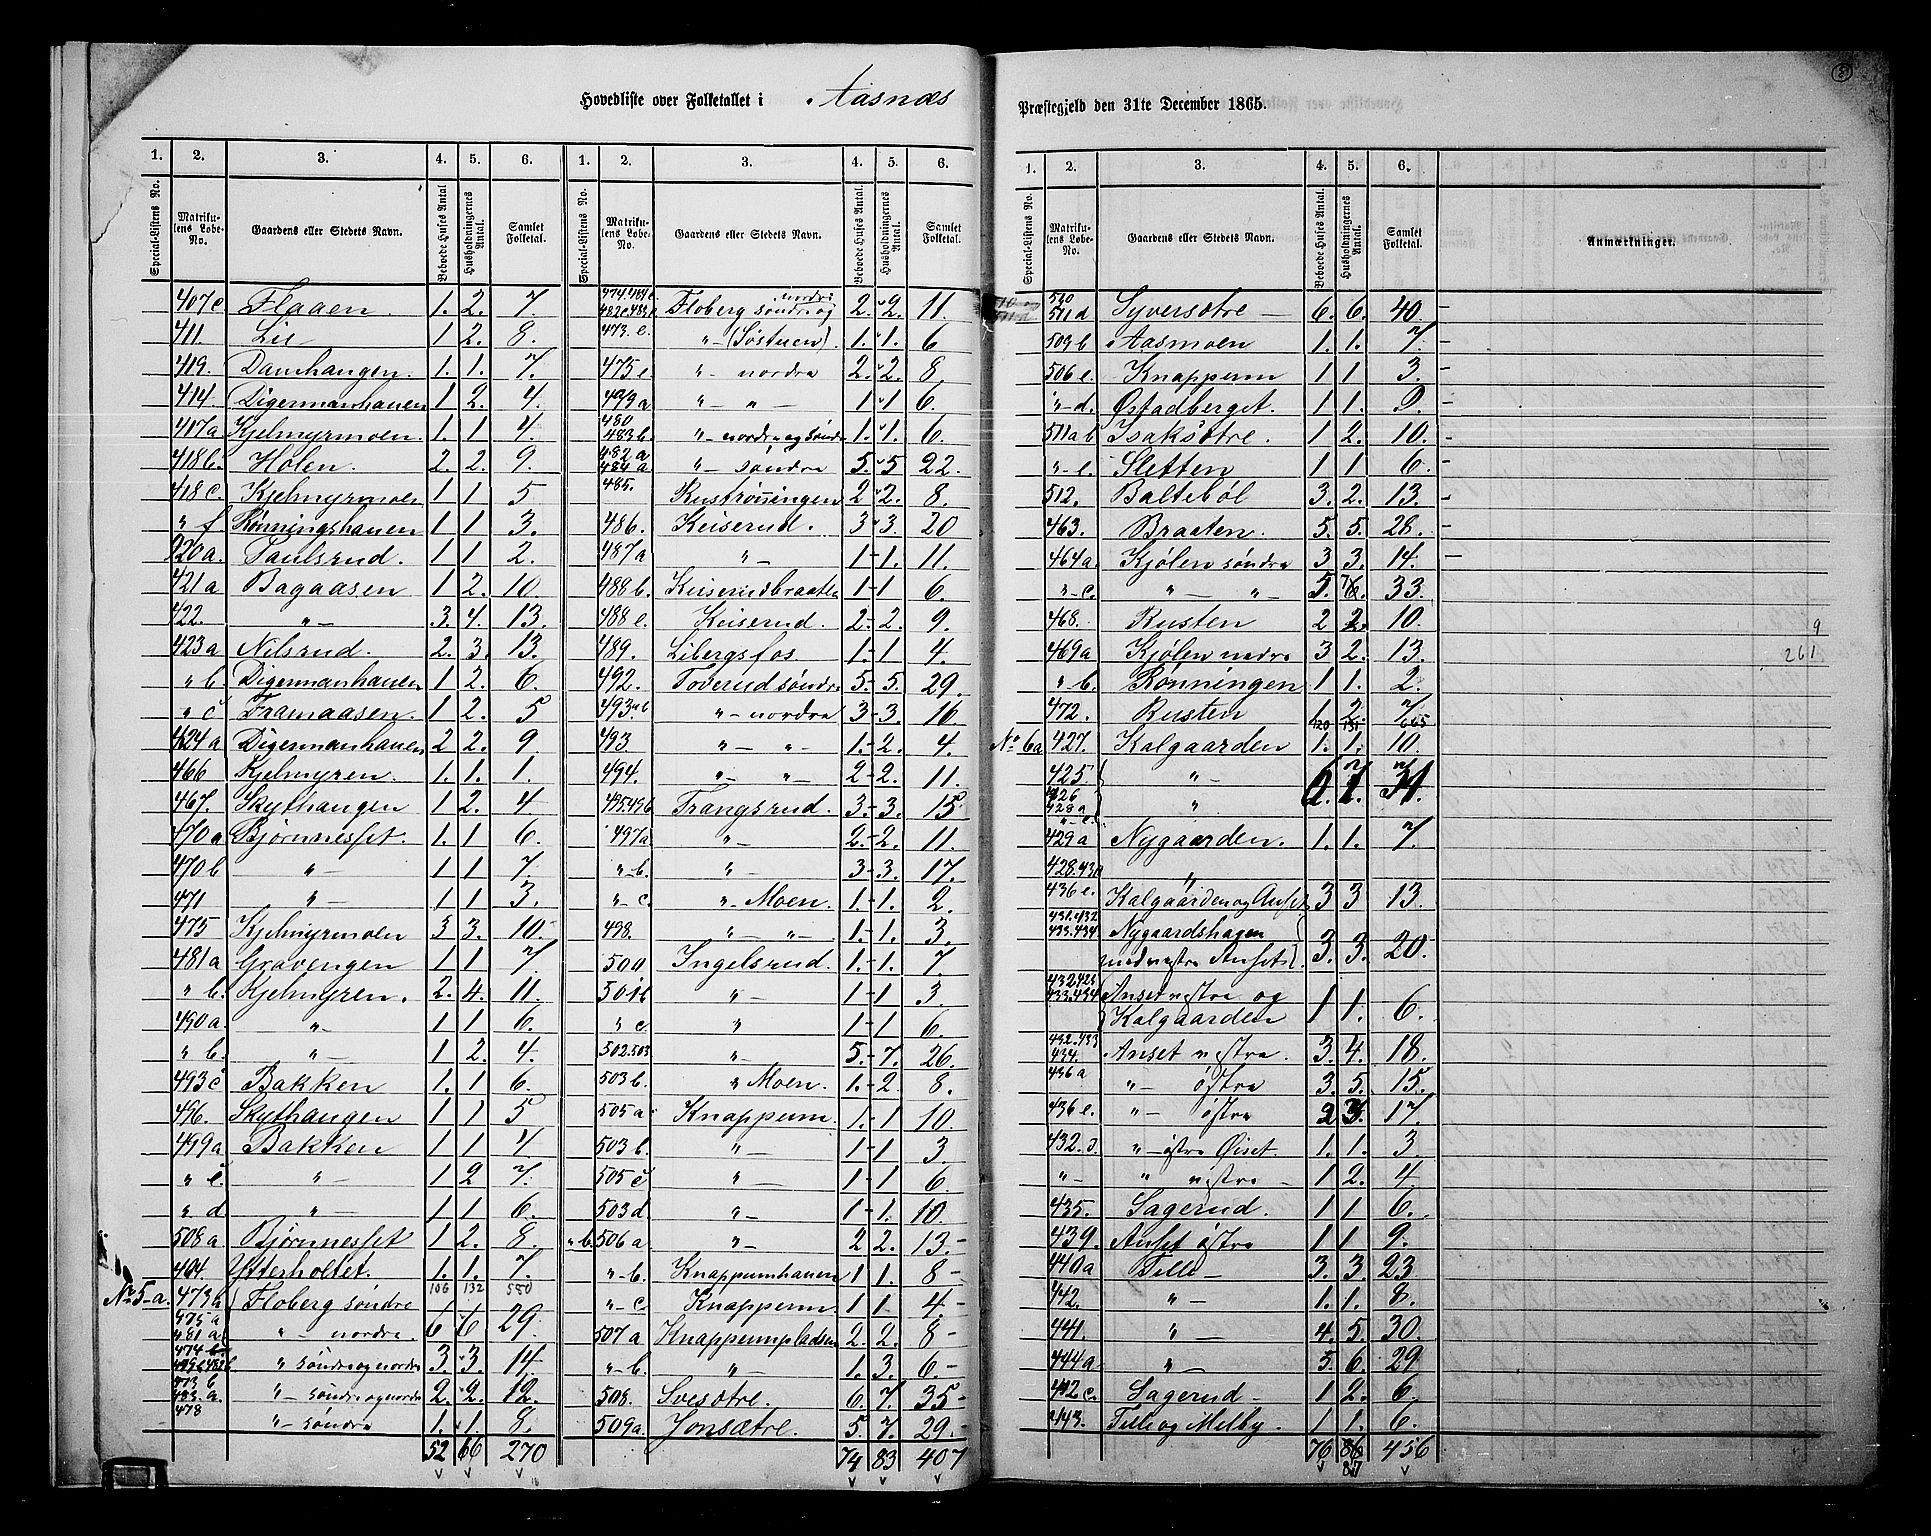 Hovedliste over Folketallet i Aasnæs
1. 2. 3. 4. 5. 6. 1. 2. 3. 4. 5. 6.
Special-Listens No. Matrikulens Løbe-No. Gaardens eller Stedets Navn. Beboede Huses Antal Husholdningernes Antal. Samlet Folketal. Special-Listens No. Matrikulens Løbe-No. Gaardens eller Stedets Navn. Beboede Huses Antal. Husholdningernes Antal. Samlet Folketal.
407c Flaaen 1. 2. 7.
411. Lie 1 2. 8.
419. Damhaugen. 1. 1. 7.
414 Digermanhauen 1 2. 4.
417a Kjelmyrmoen. 1. 1 4.
418b. Holen. 2. 2. 9.
418c. Kjelmyrmoen 1 1 5
" f Rønningshauen 1 1 3.
420a. Paulsrud. 1 1 2.
421a Bagaasen 1 2. 10.
422. " 3. 4. 13.
423a Nilsrud. 2. 3. 13.
" b. Digermanhauen 1 2. 6.
" c Framaasen. 1 2. 5
424a Digermanhauen 2 2. 9.
466 Kjelmyren. 1. 1. 1.
467. Skythaugen 1 2. 4
470a Bjørnnesset. 1. 1 6.
470b " 1 1 7.
471 " 1 1 3.
475 Kjelmyrmoen 3 3. 10.
481a Gravengen 1 1 7.
" b. Kjelmyren. 2. 4. 11.
490a. " 1 1 6.
" b. " 1 2. 4.
493c Bakken 1. 1 6.
496. Skythaugen 1 1 5
499a Bakken 1 1 4.
" c. " 1 2 7.
" d " 1 1 6.
508a Bjørnnesset 1 2. 8.
404. Ytterholtet. 1. 1. 7.
106 132 550
No 5-a. 473a Floberg søndre
475a
481a " nordre. 6 6 29.
474b " søndre og nordre 3. 3. 14.
473b
483.a. " søndre og nordre 2. 2. 12.
478 " søndre 1. 1. 8.
52 66 270
Floberg søndre og nordre 2. 2. 11.
473.e. " (Søstuen). 1. 1. 6
475e. " nordre 2. 2. 8.
" " 1 1 6.
480
483b. " nordre og søndre 1. 1. 6.
482a
484a " søndre 5. 5 22.
485. Rustrønningen 2 2. 8.
486. Keiserud. 3 3. 20
487a " 1 1. 11.
488b. Keiserudbraaten 1 1 6.
488e. Keiserud. 2 2. 9.
489. Libergsfos 1. 1 4.
492. Toverud søndre 5. 5. 29.
" nordre 3 3. 16.
493 " " 1. 2. 4.
494. " " 2 2. 11.
495.496 Trangsrud. 3 3. 15
497a " 2 2. 11.
" b. " 3 3. 17.
" c. " Moen. 1 1. 2.
498. " " 1 1. 3.
500 Ingelsrud. 1. 1. 7.
501b " 1 1 3.
" c. " 1 1 6.
502.503 " 5. 7. 26.
503b. " Moen. 1. 2. 8.
505a Knappum 1. 1 10.
503b. " 1 1 3
505c " 1 1 6.
503d. " 1 1. 10.
" b. 506a " 2 2. 13.
" b. Knappumhauen 1 1. 8
" c. Knappum 1 1 4.
507a Knappumpladsen 2. 2. 8
" b. " 1. 3. 6
508. Svesøtre. 6. 7. 35
509a. Jonsætre. 5. 7. 29.
74 83 407
Præstegjeld den 31te December 1865.
1. 2. 3. 4. 5. 6.
Special-Listens No. Matrikulens Løbe-No. Gaardens eller Stedets Navn. Beboede Huses Antal. Husholdningernes Antal. Samlet Folketal. Anmærkninger.
510
511d Syversøtre 6. 6. 40.
509b Aasmoen 1. 1. 7.
506e. Knappum 1 1 3.
" d. Østadberget. 1 1. 9.
511ab Isaksøtre. 1 2. 10.
" e. Sletten 1 1 6.
512. Baltebøl 3. 2. 13.
463. Braaten 5. 5. 28.
464a Kjølen søndre 3 3. 14.
" c. " " 5. 33.
468. Rusten 2 2. 10.
469a Kjølen nedre 3 2. 13.
" b. Rønningen 1 1. 2.
472. Rusten 1 2. 7
120 131
No 6a 427. Kalgaarden 1. 1. 10.
425 "
426
428a " 31.
" c.
429a Nygaarden. 1. 1. 7.
"
436e. Kalgaarden og Anset 3 3 13.
431.432
433.434 Nygaardshagen
med vestre Anset 3. 3. 20.
433.434 Anset vestre og
Kalgaarden 1 1. 6.
432.433
434. Anset vestre. 3. 4. 18.
436a " østre 3. 5. 15.
436e. " østre 2 3. 17.
432.d. " østre Øiset. 1. 1. 3.
" " vestre 1 2. 4.
435. Sagerud. 1 1 6.
439. Anset østre 1 1 9.
440a Telle 3. 3. 23
442. " 1. 1. 8.
441. " 4. 5. 30.
444a " 5. 6. 29
442c. Sagerud 1 2. 6.
443. Telle og Melby. 1 1. 6.
76 86 456
87
9
261